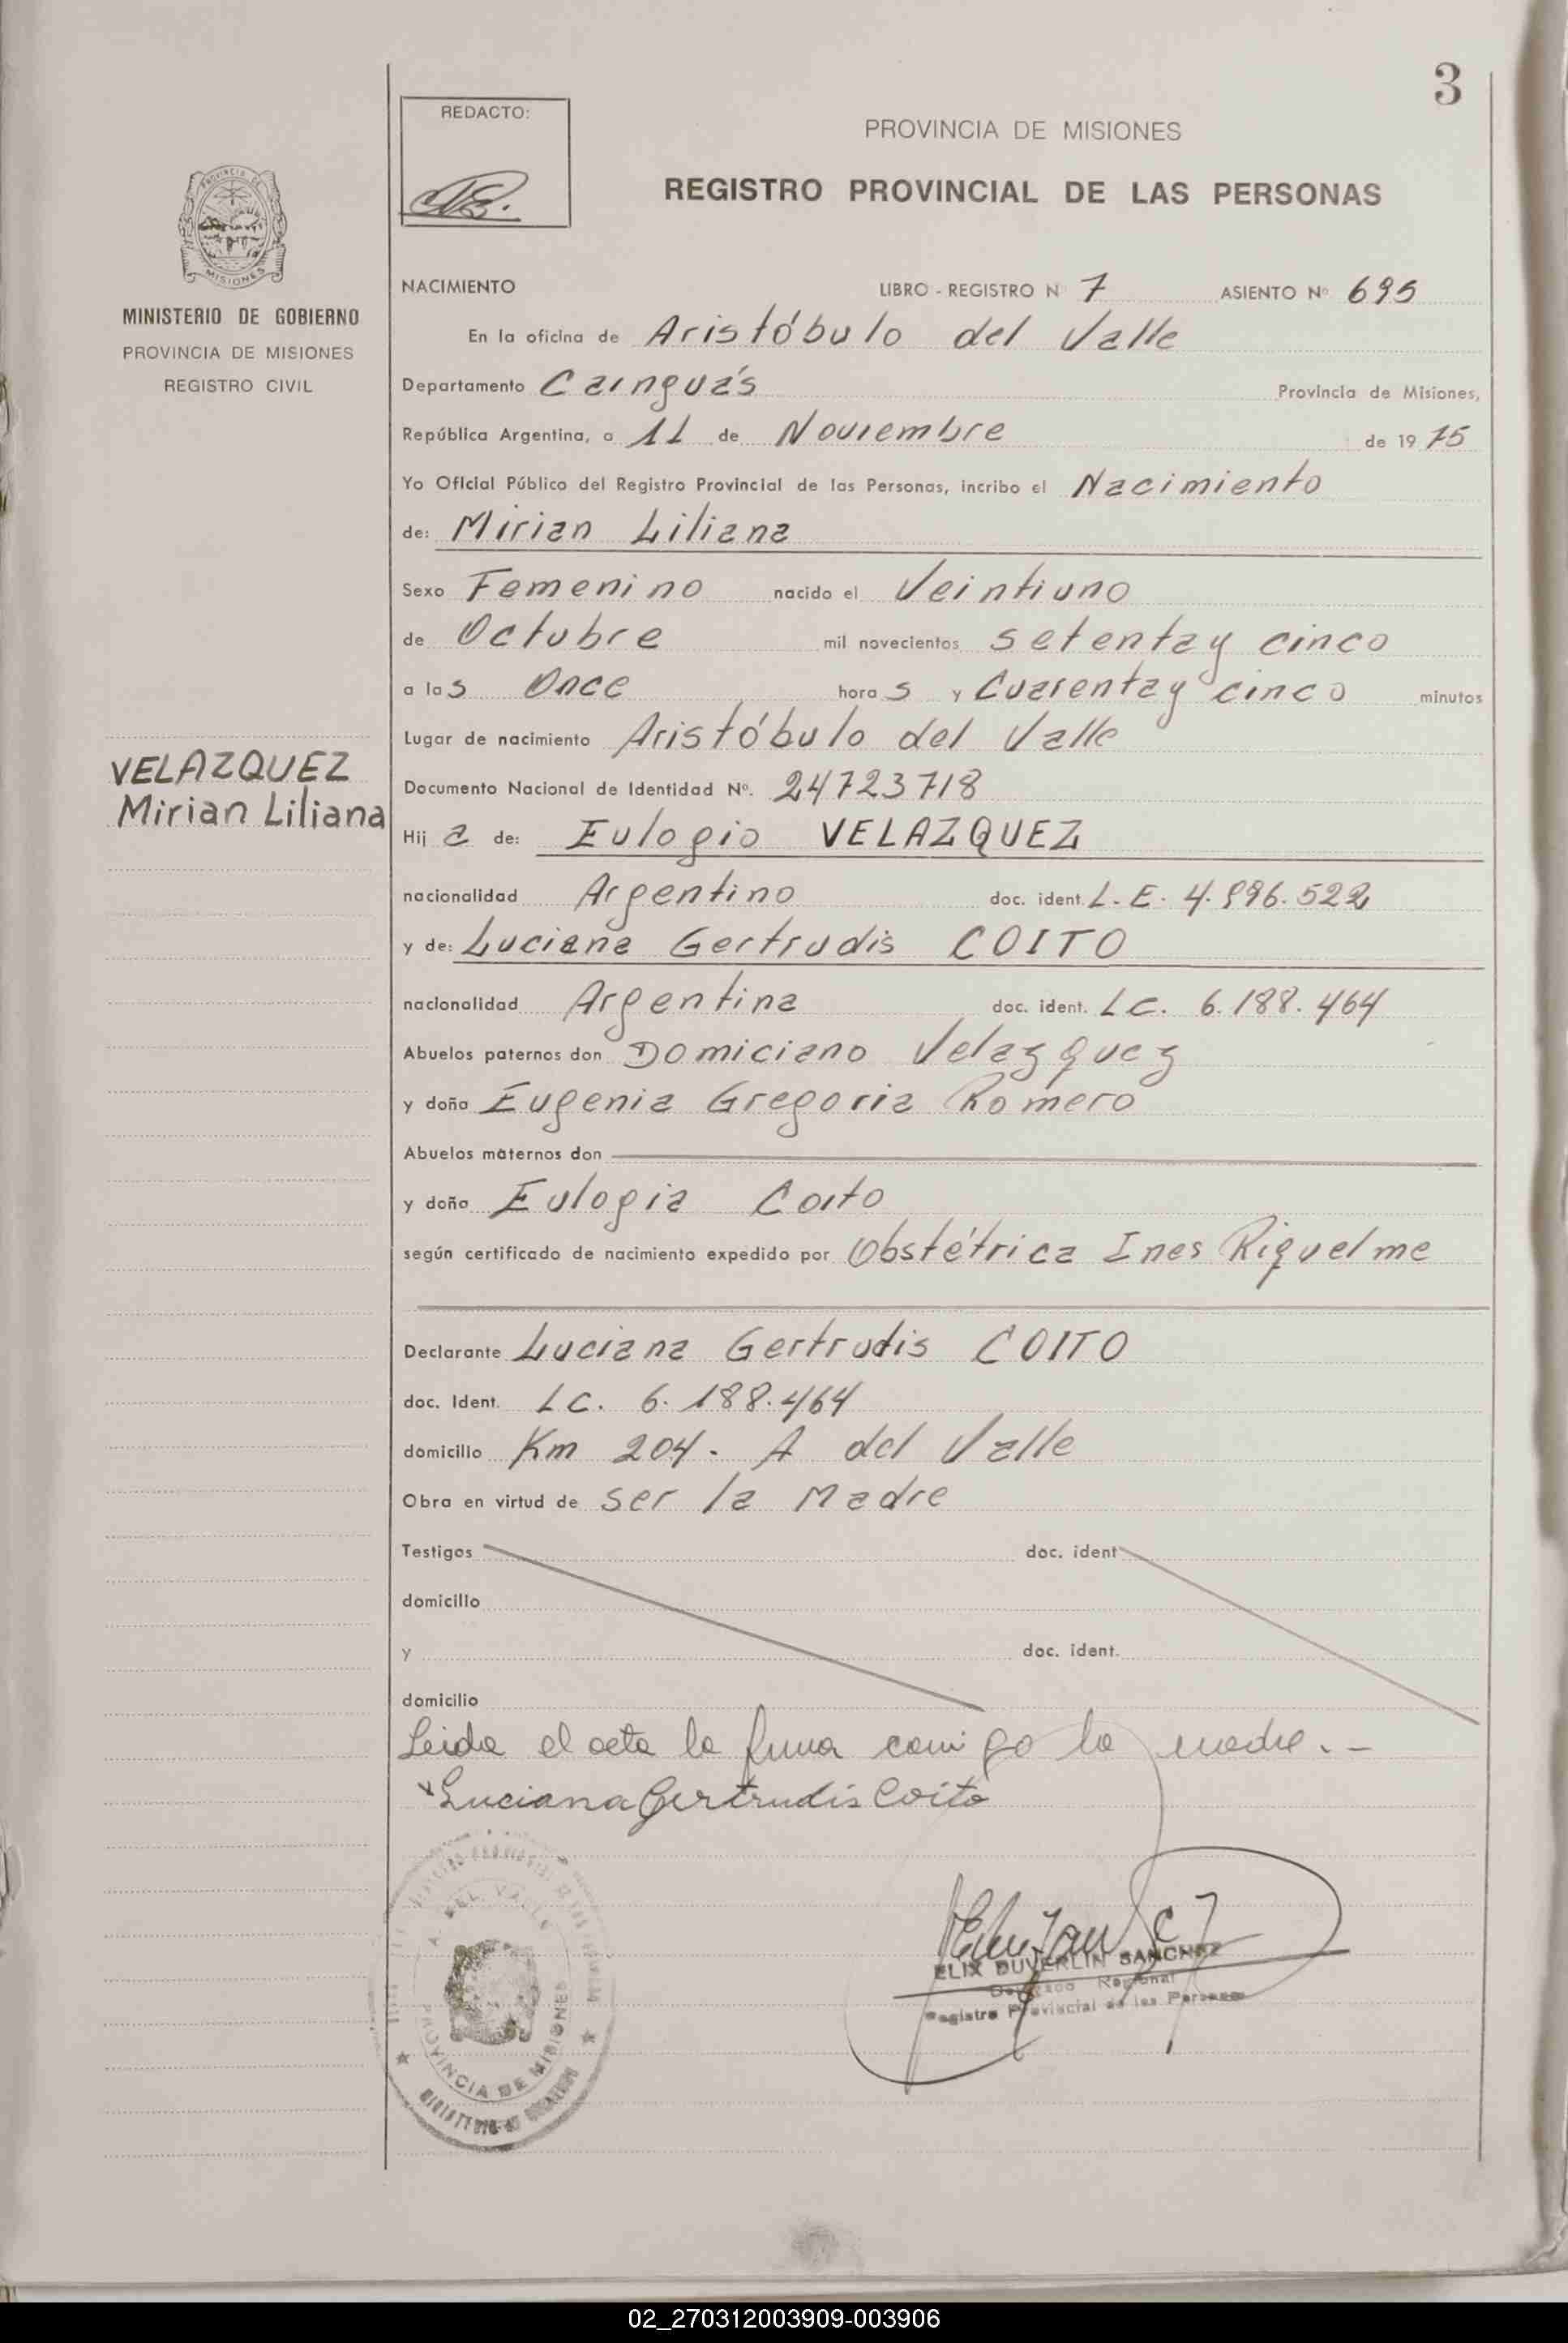 3
REDACTO:
PROVINCIA DE MISIONES
REGISTRO PROVINCIAL DE LAS PERSONAS
MISIONES
MINISTERIO DE GOBIERNO
PROVINCIA DE MISIONES
REGISTRO CIVIL
NACIMIENTO LIBRO - REGISTRO N 7 ASIENTO Nº 695
En la oficina de Aristóbulo del Valle
Departamento Cainguás Provincia de Misiones,
República Argentina, a 11 de Noviembre de 19 75
Yo Oficial Público del Registro Provincial de las Personas, incribo el Nacimiento
de: Mirian Liliana
Sexo Femenino nacido el Veintiuno
de Octubre mil novecientos setenta y cinco
a las Once horas y Cuarenta y cinco minutos
Lugar de nacimiento Aristóbulo del Valle
VELAZQUEZ
Mirian Liliana
Documento Nacional de Identidad Nº. 24723718
Hij a de: Eulogio VELAZQUEZ
nacionalidad Argentino doc. ident. L.E. 4.996.522
y de: Luciana Gertrudis COITO
nacionalidad Argentina doc. ident. LC. 6.188.464
Abuelos paternos don Domiciano Velazquez
y doña Eugenia Gregoria Romero
Abuelos maternos don
y doña Eulogia Coito
según certificado de nacimiento expedido por Obstétrica Ines Riquelme
Declarante Luciana Gertrudis COITO
doc. Ident. LC. 6.188.464
domicilio Km 204 - A del Valle
Obra en virtud de ser la Madre
Testigos doc. ident
domicilio
y doc. ident.
domicilio
Leida el acta la firma conmigo la madre.-
Luciana Gertrudis Coito
ELIX DUVERLIN SANCHEZ
Delegado Regional
Registro Provincial de las Personas
PROVINCIA DE MISIONES
02_270312003909-003906